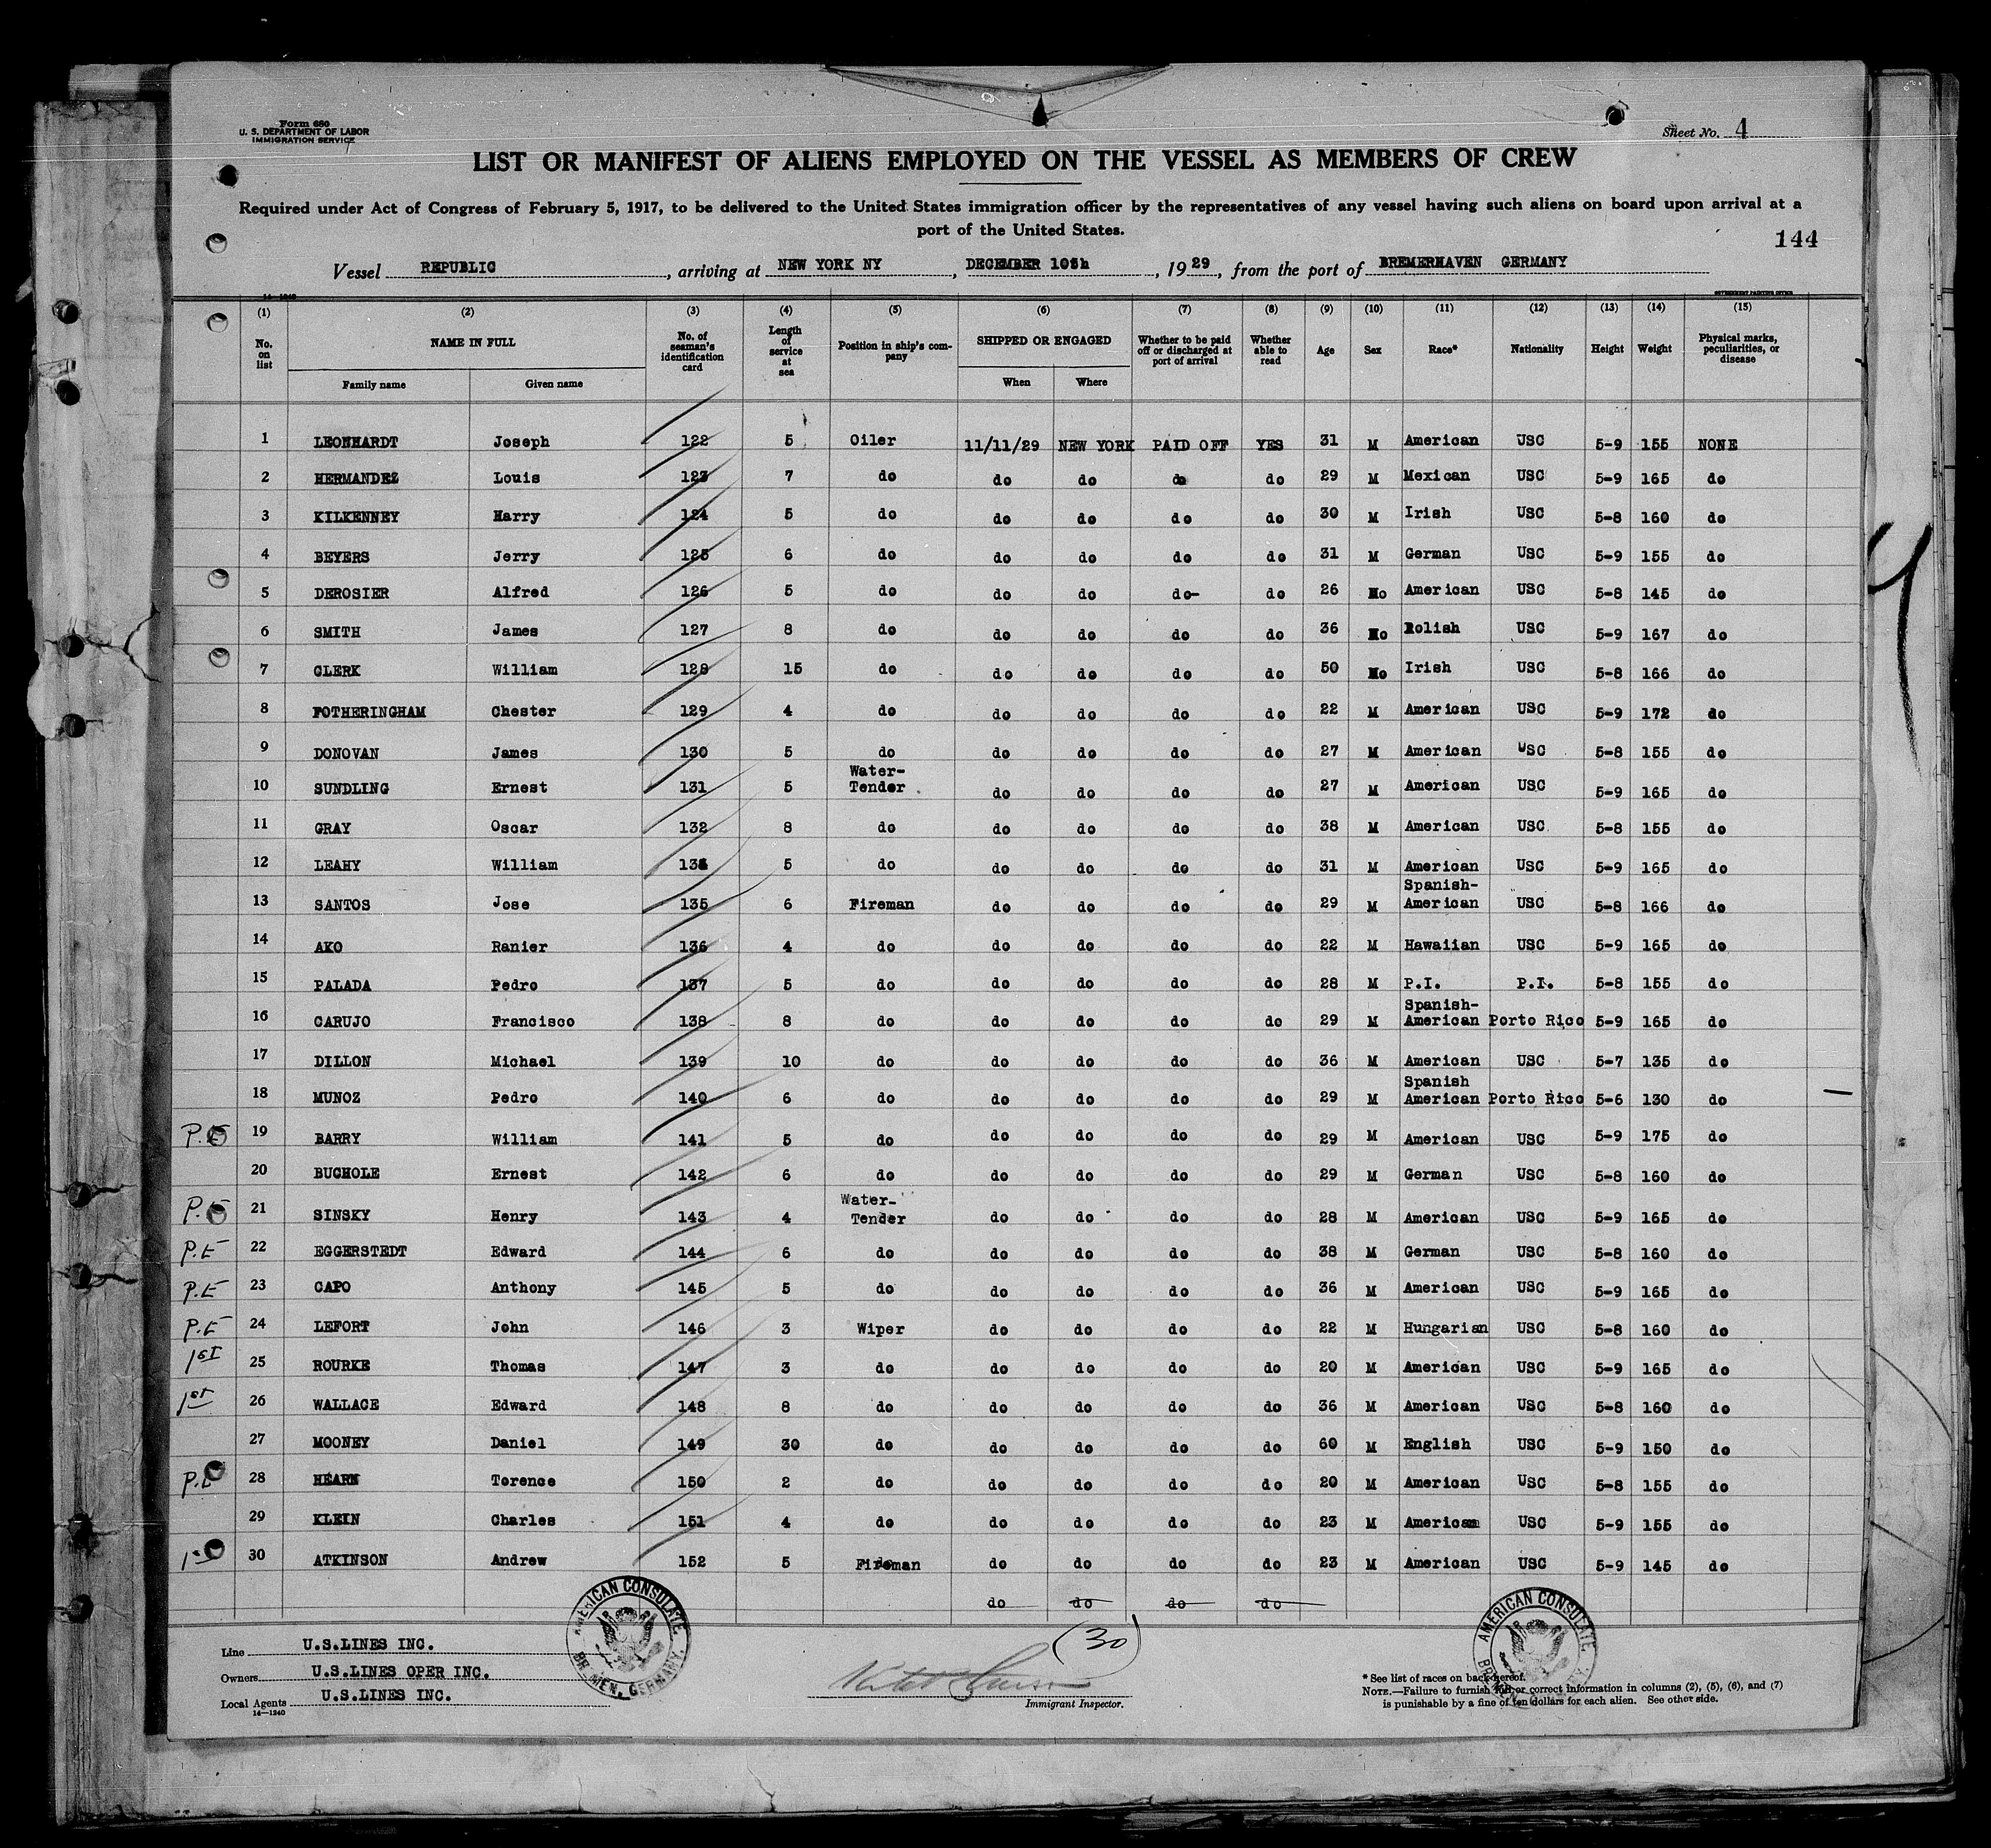 Form 680
U. S. DEPARTMENT OF LABOR
IMMIGRATION SERVICE
Sheet No. 4
LIST OR MANIFEST OF ALIENS EMPLOYED ON THE VESSEL AS MEMBERS OF CREW
Required under Act of Congress of February 5, 1917, to be delivered to the United States immigration officer by the representatives of any vessel having such aliens on board upon arrival at a
port of the United States.
144
Vessel REPUBLIC, arriving at NEW YORK NY, DECEMBER 10th, 1929, from the port of BREMERHAVEN GERMANY
14—1240
(1) (2) (3) (4) (5) (6) (7) (8) (9) (10) (11) (12) (13) (14) (15)
No. on list NAME IN FULL Family name Given name No. of seaman's identification card Length of service at sea Position in ship's company SHIPPED OR ENGAGED When Where Whether to be paid off or discharged at port of arrival Whether able to read Age Sex Race* Nationality Height Weight Physical marks, peculiarities, or disease
1 LEONHARDT Joseph 122 5 Oiler 11/11/29 NEW YORK PAID OFF YES 31 M American USC 5-9 155 NONE
2 HERMANDEZ Louis 123 7 do do do do do 29 M Mexican USC 5-9 165 do
3 KILKENNEY Harry 124 5 do do do do do 30 M Irish USC 5-8 160 do
4 BEYERS Jerry 125 6 do do do do do 31 M German USC 5-9 155 do
5 DEROSIER Alfred 126 5 do do do do- do 26 Mo American USC 5-8 145 do
6 SMITH James 127 8 do do do do do 36 Mo Polish USC 5-9 167 do
7 CLERK William 128 15 do do do do do 50 Mo Irish USC 5-8 166 do
8 FOTHERINGHAM Chester 129 4 do do do do do 22 M American USC 5-9 172 do
9 DONOVAN James 130 5 do do do do do 27 M American USC 5-8 155 do
10 SUNDLING Ernest 131 5 Water-Tender do do do do 27 M American USC 5-9 165 do
11 GRAY Oscar 132 8 do do do do do 38 M American USC 5-8 155 do
12 LEAHY William 5 do do do do do 31 M American USC 5-9 165 do
13 SANTOS Jose 135 6 Fireman do do do do 29 M Spanish-American USC 5-8 166 do
14 AKO Ranier 136 4 do do do do do 22 M Hawaiian USC 5-9 165 do
15 PALADA Pedro 137 5 do do do do do 28 M P.I. P.I. 5-8 155 do
16 CARUJO Francisco 138 8 do do do do do 29 M Spanish-American Porto Rico 5-9 165 do
17 DILLON Michael 139 10 do do do do do 36 M American USC 5-7 135 do
18 MUNOZ Pedro 140 6 do do do do do 29 M Spanish American Porto Rico 5-6 130 do
P.E 19 BARRY William 141 5 do do do do do 29 M American USC 5-9 175 do
20 BUCHOLE Ernest 142 6 do do do do do 29 M German USC 5-8 160 do
P.E 21 SINSKY Henry 143 4 Water-Tender do do do do 28 M American USC 5-9 165 do
P.E 22 EGGERSTEDT Edward 144 6 do do do do do 38 M German USC 5-8 160 do
P.E 23 CAPO Anthony 145 5 do do do do do 36 M American USC 5-9 165 do
P.E 24 LEFORT John 146 3 Wiper do do do do 22 M Hungarian USC 5-8 160 do
1st 25 ROURKE Thomas 147 3 do do do do do 20 M American USC 5-9 165 do
1st 26 WALLACE Edward 148 8 do do do do do 36 M American USC 5-8 160 do
27 MOONEY Daniel 149 30 do do do do do 60 M English USC 5-9 150 do
P.E 28 HEARN Terence 150 2 do do do do do 20 M American USC 5-8 155 do
29 KLEIN Charles 151 4 do do do do do 23 M American USC 5-9 155 do
30 ATKINSON Andrew 152 5 Fireman do do do do 23 M American USC 5-9 145 do
do do do do
(30)
Line U.S.LINES INC.
Owners U.S.LINES OPER INC.
Local Agents U.S.LINES INC.
14—1240
AMERICAN CONSULATE BREMEN, GERMANY.
Immigrant Inspector.
AMERICAN CONSULATE
* See list of races on back hereof.
NOTE.—Failure to furnish full or correct information in columns (2), (5), (6), and (7)
is punishable by a fine of ten dollars for each alien. See other side.